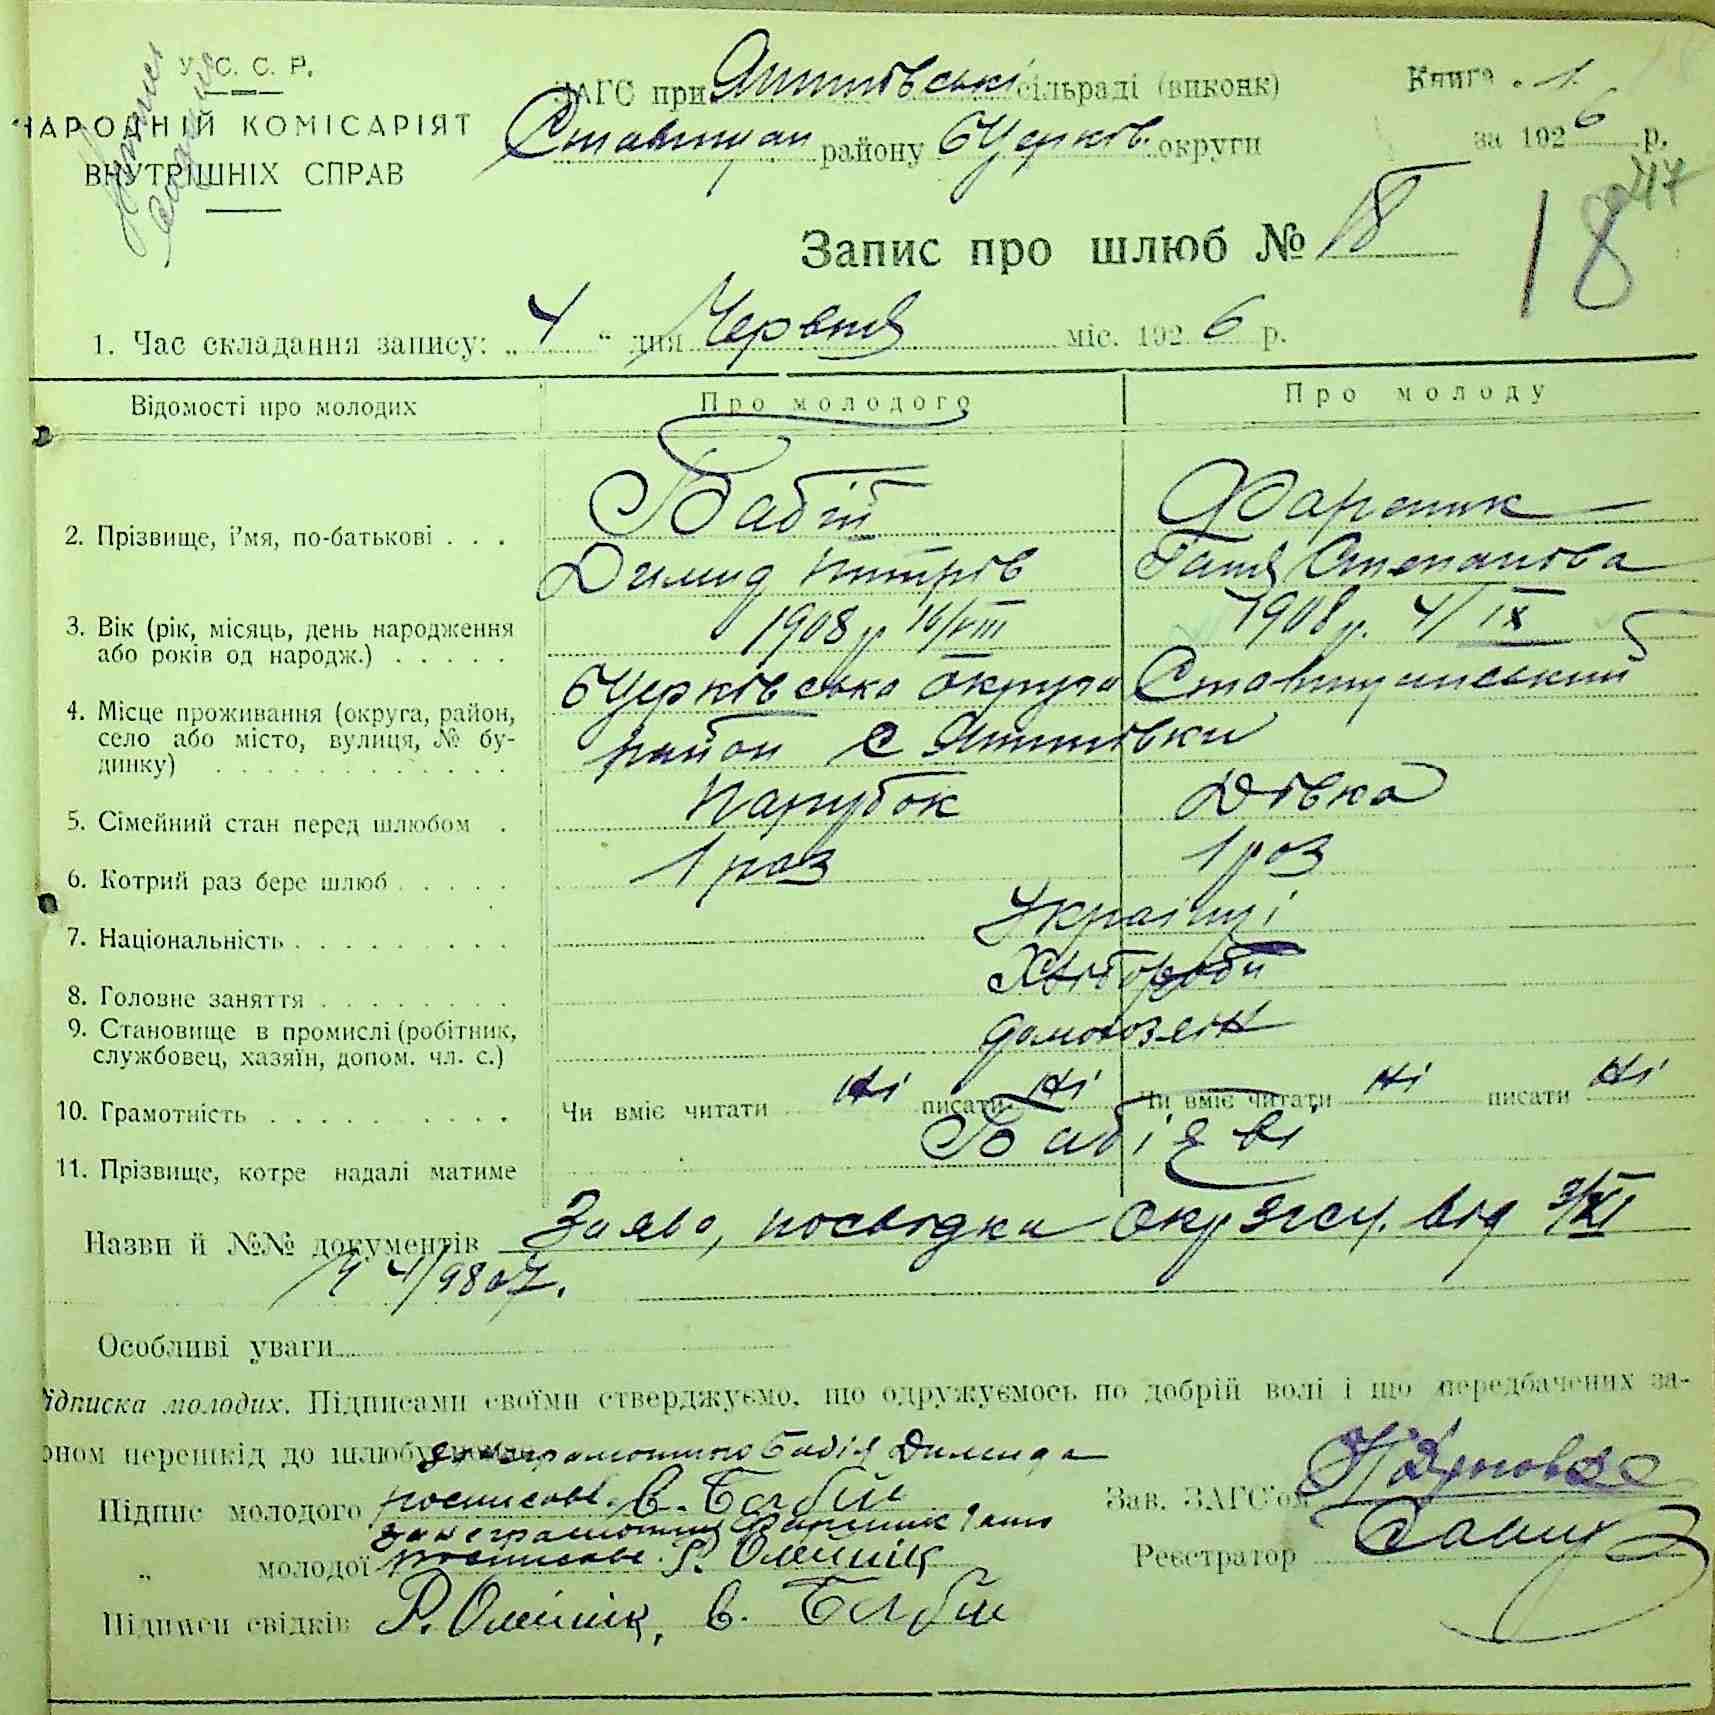 У. С. С. Р.
НАРОДНІЙ КОМІСАРІЯТ
ВНУТРІШНІХ СПРАВ
ЗАГС при сільраді (виконк)
району БЦерків. округи
Книга 1
за 1926 р.
417
Запис про шлюб № 18
18
1. Час складання запису: „ 4 “ дня Червня міс. 1926 р.
Відомості про молодих Про молодого Про молоду
2. Прізвище, і'мя, по-батькові . . . Бабій
Димид Петрів Ганя Степанова
3. Вік (рік, місяць, день народження 1908 р 16/VIII 1908 р. 4/IX
або років од народж.) . . . . .
4. Місце проживання (округа, район, БЦерківська округа Ставищанський
село або місто, вулиця, № бу- район с
динку) . . . . . . . . . . . .
5. Сімейний стан перед шлюбом . Парубок Дівка
6. Котрий раз бере шлюб . . . . . 1 раз 1 раз
7. Національність . . . . . . . . . Українці
8. Головне заняття . . . . . . . . Хлібороби
9. Становище в промислі (робітник,
службовец, хазяїн, допом. чл. с.)
10. Грамотність . . . . . . . . . . Чи вміє читати ні писати ні Чи вміє читати ні писати ні
11. Прізвище, котре надалі матиме Бабієві
Назви й №№ документів Заява, посвідка від 3/XI
Особливі уваги
ідписка молодих. Підписами своїми стверджуємо, що одружуємось по добрій волі і що передбачених за-
оном перешкід до шлюбу за неграмотного Бабія Димида
Підпис молодого В. Бабій Зав. ЗАГС'ом
за неграмотну
„ молодої Р. Олейнік Реєстратор
Підписи свідків Р. Олейнік, В. Бабій